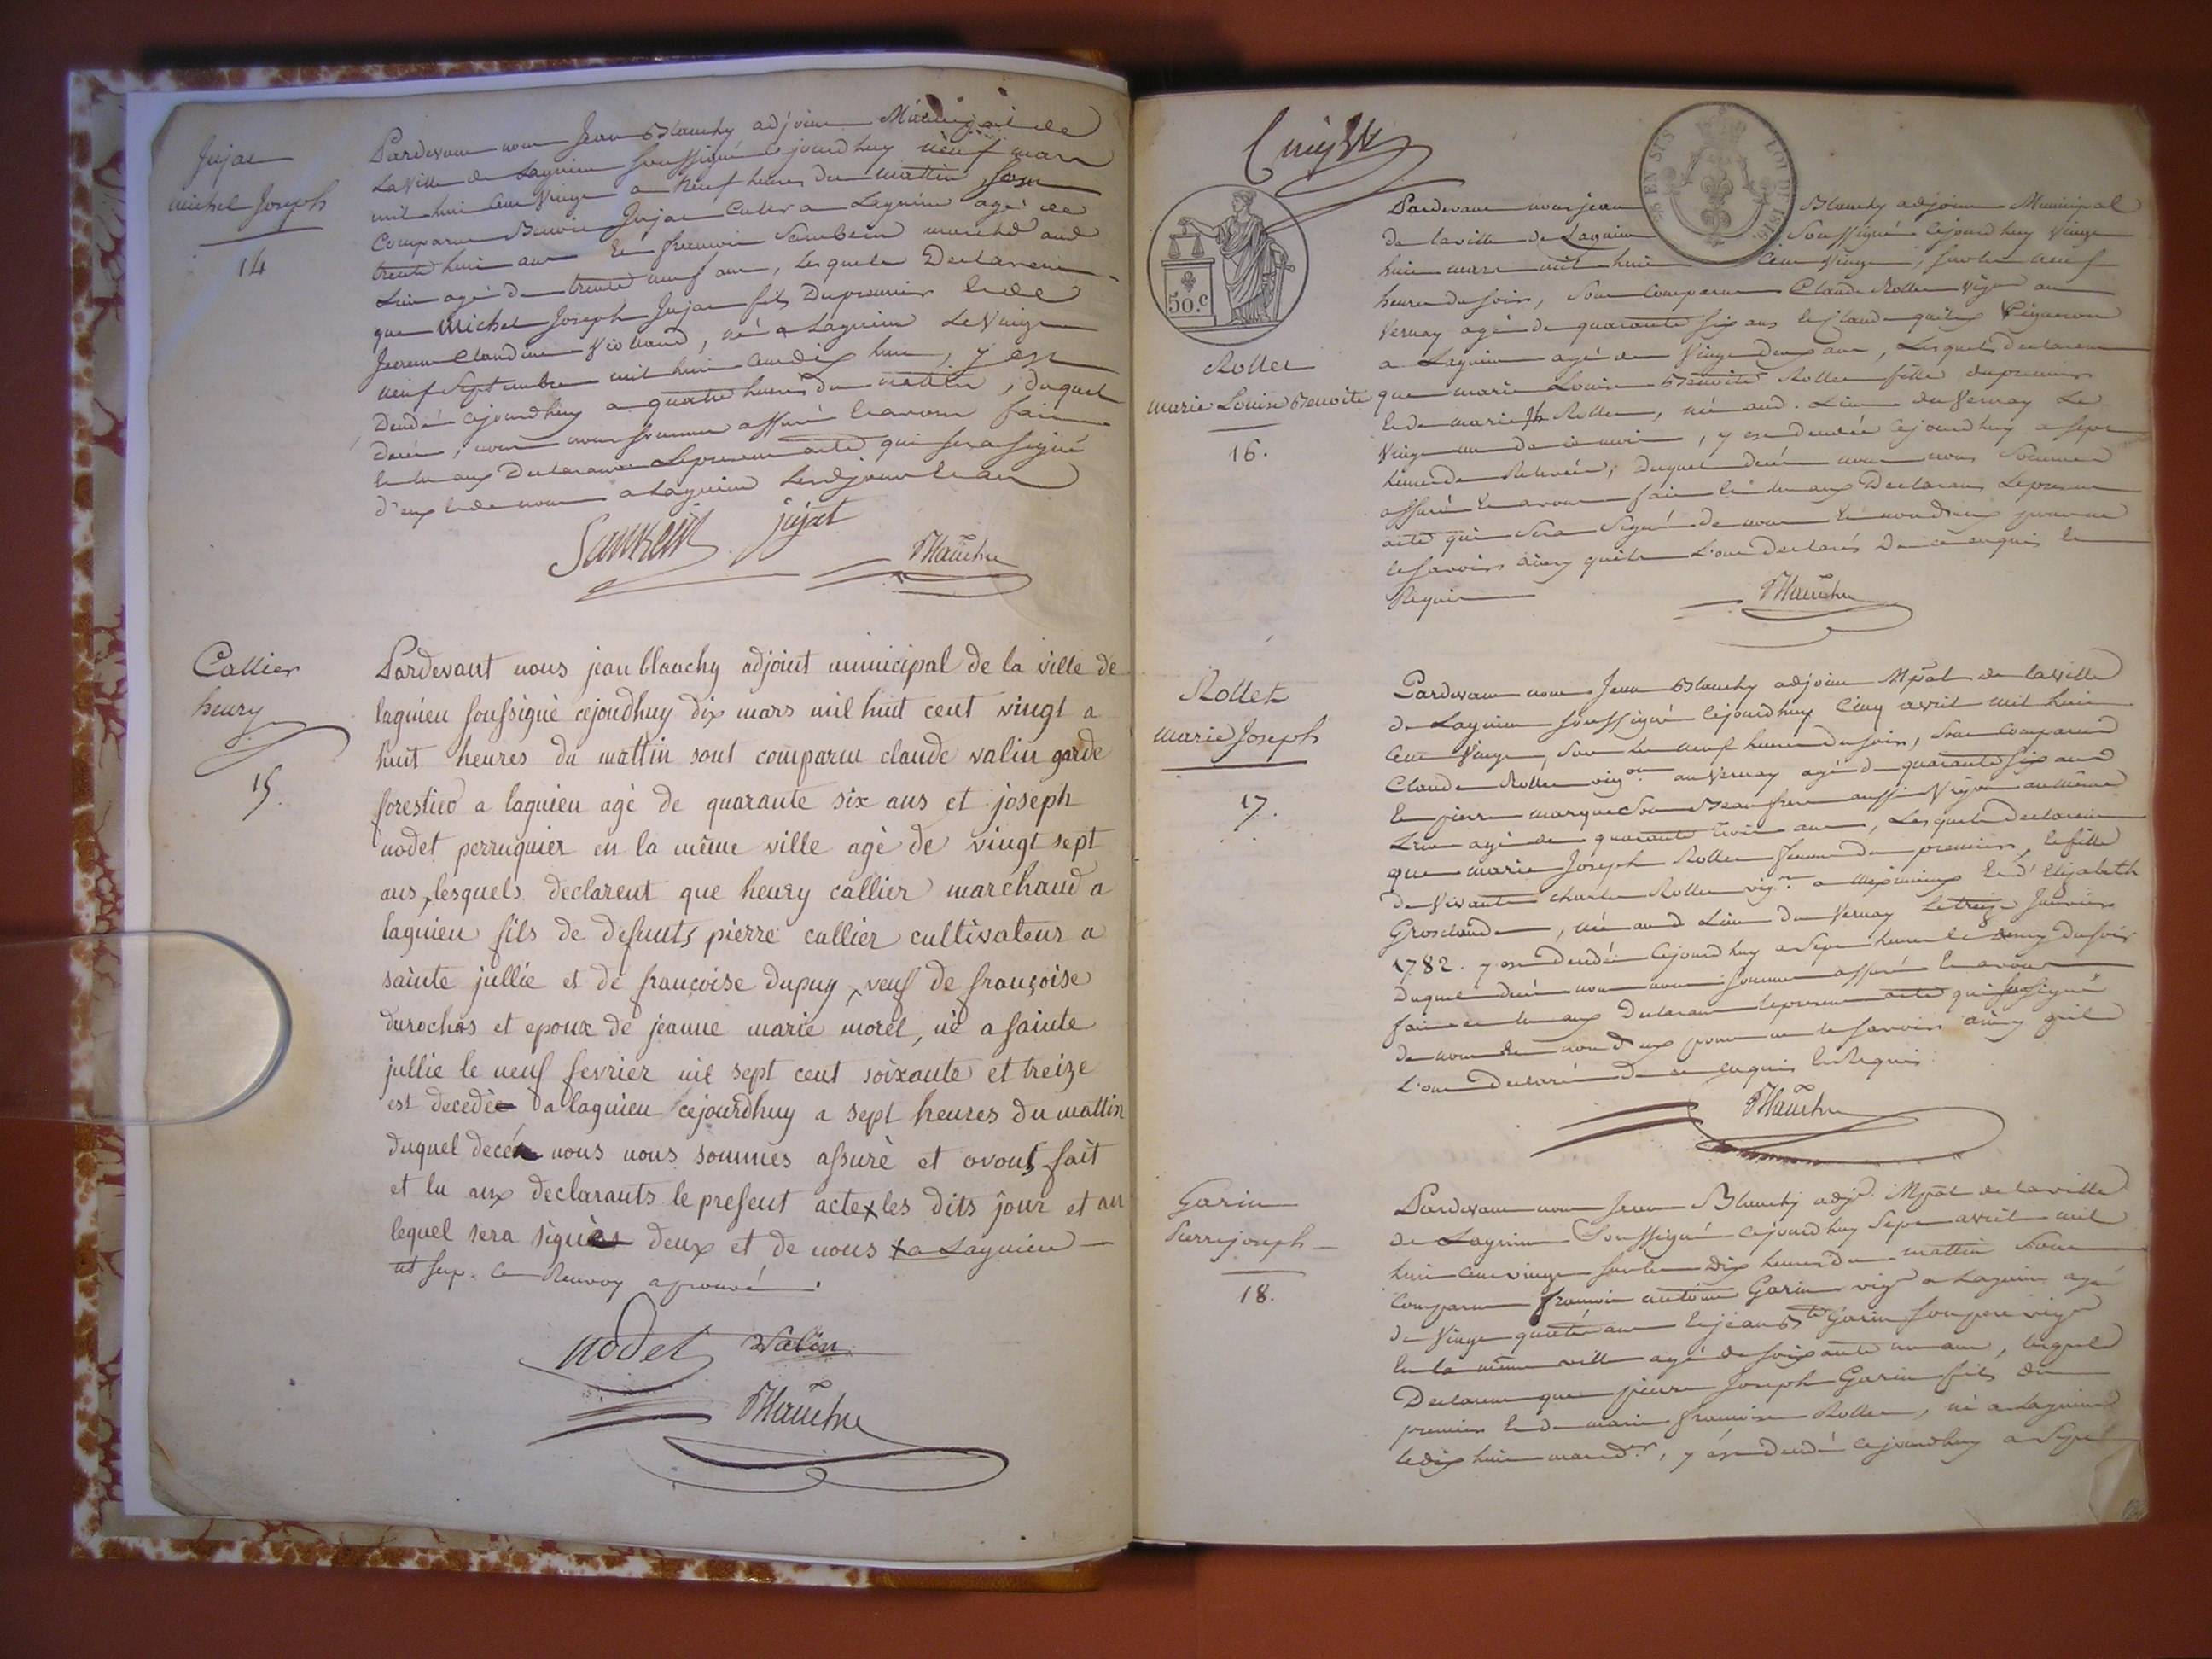 Jujat
michel Joseph
14
Pardevant nous Jean Blanchy adjoint Municipal de
La Ville de Lagnieu soussigné cejourdhuy neuf mars
mil huit Cent Vingt a Neuf heures du mattin sont
Comparus Benoit Jujat Cult.r a Lagnieu agé de
trente huit ans Et francois Sambein marchd aud
Lieu agé de trente neuf ans, Lesquels Declarent
que Michel Joseph Jujat fils Dupremier Et de
Claudine Violland, né a Lagnieu Le Vingt
neuf Septembre mil huit Cent dix huit, y est
Decedé cejourdhuy a quatre heures du mattin, duquel
decés, nous nous sommes assuré Et avons fait
Et lu aux Declarants Lepresent acte qui sera signé
d'eux Et de nous a Lagnieu Lesd jour Et an
Sambein jujat
Blanchy
Callier
henry
15.
Pardevant nous jean blanchy adjoint municipal de la ville de
lagnieu soussigné cejoudhuy dix mars mil huit cent vingt a
huit heures du mattin sont comparu claude valin garde
forestier a lagnieu agé de quarante six ans et joseph
nodet perruquier en la même ville agé de vingt sept
ans, lesquels declarent que henry callier marchand a
lagnieu fils de defunts pierre callier cultivateur a
sainte jullie et de françoise dupuy, veuf de françoise
durochas et epoux de jeanne marie morel, né a sainte
jullie le neuf fevrier mil sept cent soixante et treize
est decedé a lagnieu cejourdhuy a sept heures du mattin
duquel decés nous nous sommes assuré et avons fait
et lu aux declarants le present acte x les dits jour et an
lequel sera signé deux et de nous x a Lagnieu
ut sup. Ce Renvoy aprouvé.
nodet Valin
Blanchy
30.c
Rollet
marie Louise Benoite
16.
Pardevant nous jean Blanchy adjoint Municipal
de la ville de Lagnieu Soussigné Cejourdhuy Vingt
huit mars mil huit Cent Vingt, sur les neuf
heures du soir, Sont Comparus Claude Rollet Vign au
Vernay agé de quarante six ans Et Claude Vigneron
a Lagnieu agé de Vingt Deux ans, Lesquels declarent
que marie Louise Benoite Rollet fille dupremier
Et de marie Jh Rollet, née aud. Lieu du Vernay Le
Vingt un de ce mois, y est decedée Cejourdhuy a sept
heures De Relevée; Duquel decés nous nous Sommes
assuré Et avons fait Et lu aux Declarants Lepresent
acte qui Sera Signé de nous Et non d'eux pour ne
le savoir ainsy quils L'ont declarés De ce enquis Et
Requis
Blanchy
Rollet
marie Joseph
17.
Pardevant nous Jean Blanchy adjoint Mpal de la Ville
de Lagnieu soussigné Cejourdhuy Cinq avril mil huit
Cent Vingt, Sur les neuf heures du soir, Sont Comparus
Claude Rollet vigon au Vernay agé de quarante six ans
Et pierre marque Son Beaufrere aussi Vigon au même
Lieu agé de quarante trois ans, Lesquels Declarent
que marie Joseph Rollet femme du premier, Et fille
de Vivants charles Rollet vig.n a Meximieux Et d'Elizabeth
Grosclaude, née aud Lieu du Vernay Le treize Janvier
1782. y est Decedée Cejourdhuy a Sept heures Et demy du soir
Duquel decés nous nous sommes assuré Et avons
fait et lu aux Declarants Lepresent acte qui sera signé
de nous Et non d'eux pour ne le savoir ainsy quils
L'ont Declaré de ce enquis Et Requis
Blanchy
Garin
Pierre joseph
18.
Pardevant nous Jean Blanchy adj.t Mpal de la ville
de Lagnieu Soussigné Cejourdhuy Sept avril mil
huit Cent vingt sur les Dix heures du mattin Sont
Comparus francois antoine Garin vign a Lagnieu agé
de Vingt quatre ans Et jean Bte Garin Son pere vign
En la même ville agé de soixante un ans, Lesquels
Declarent que pierre Joseph Garin fils du
premier Et de marie francoise Rollet, né a Lagnieu
le dix huit mars d.er, y est decedé cejourdhuy a Sept